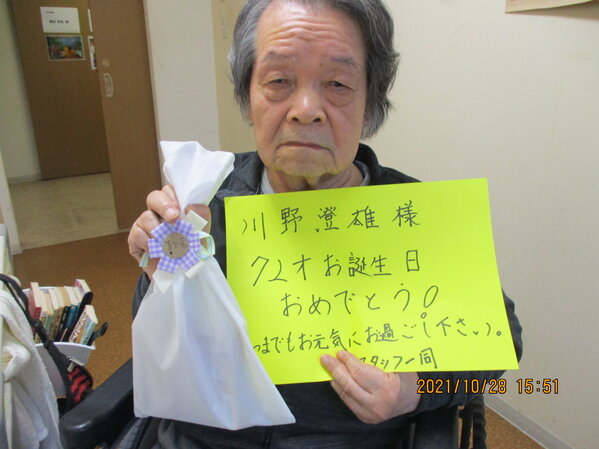 川野澄雄様
72才お誕生日
おめでとう!
いつまでもお元気にお過ごし下さい。
スタッフ一同
2021/10/28 15:51